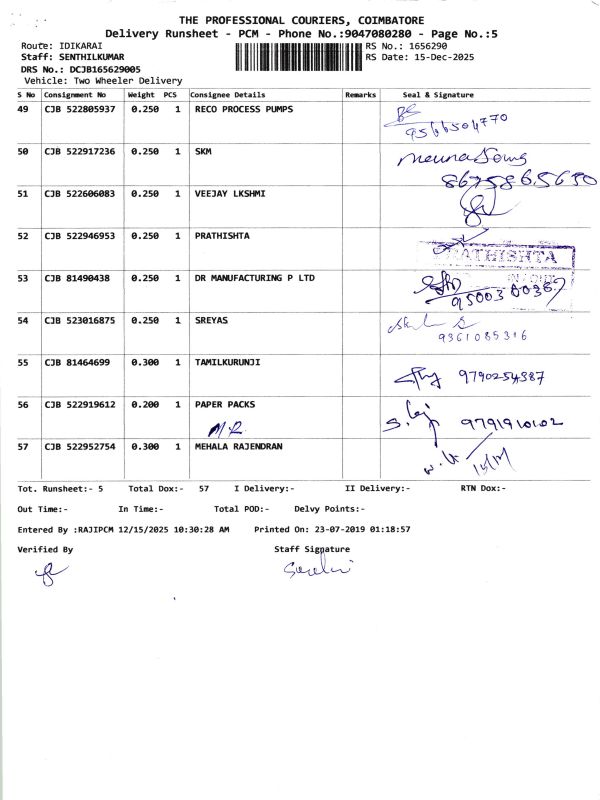 THE PROFESSIONAL COURIERS, COIMBATORE
Delivery Runsheet - PCM - Phone No.:9047080280 - Page No.:5
Route: IDIKARAI RS No.: 1656290
Staff: SENTHILKUMAR RS Date: 15-Dec-2025
DRS No.: DCJB165629005
Vehicle: Two Wheeler Delivery
S No Consignment No Weight PCS Consignee Details Remarks Seal & Signature
49 CJB 522805937 0.250 1 RECO PROCESS PUMPS
9566504770
50 CJB 522917236 0.250 1 SKM
8675865630
51 CJB 522606083 0.250 1 VEEJAY LKSHMI
52 CJB 522946953 0.250 1 PRATHISHTA
PRATHISHTA
53 CJB 81490438 0.250 1 DR MANUFACTURING P LTD
95003 00367
54 CJB 523016875 0.250 1 SREYAS
9361085316
55 CJB 81464699 0.300 1 TAMILKURUNJI
9790254387
56 CJB 522919612 0.200 1 PAPER PACKS
9791910102
M.R.
57 CJB 522952754 0.300 1 MEHALA RAJENDRAN
Tot. Runsheet:- 5 Total Dox:- 57 I Delivery:- II Delivery:- RTN Dox:-
Out Time:- In Time:- Total POD:- Delvy Points:-
Entered By :RAJIPCM 12/15/2025 10:30:28 AM Printed On: 23-07-2019 01:18:57
Verified By Staff Signature